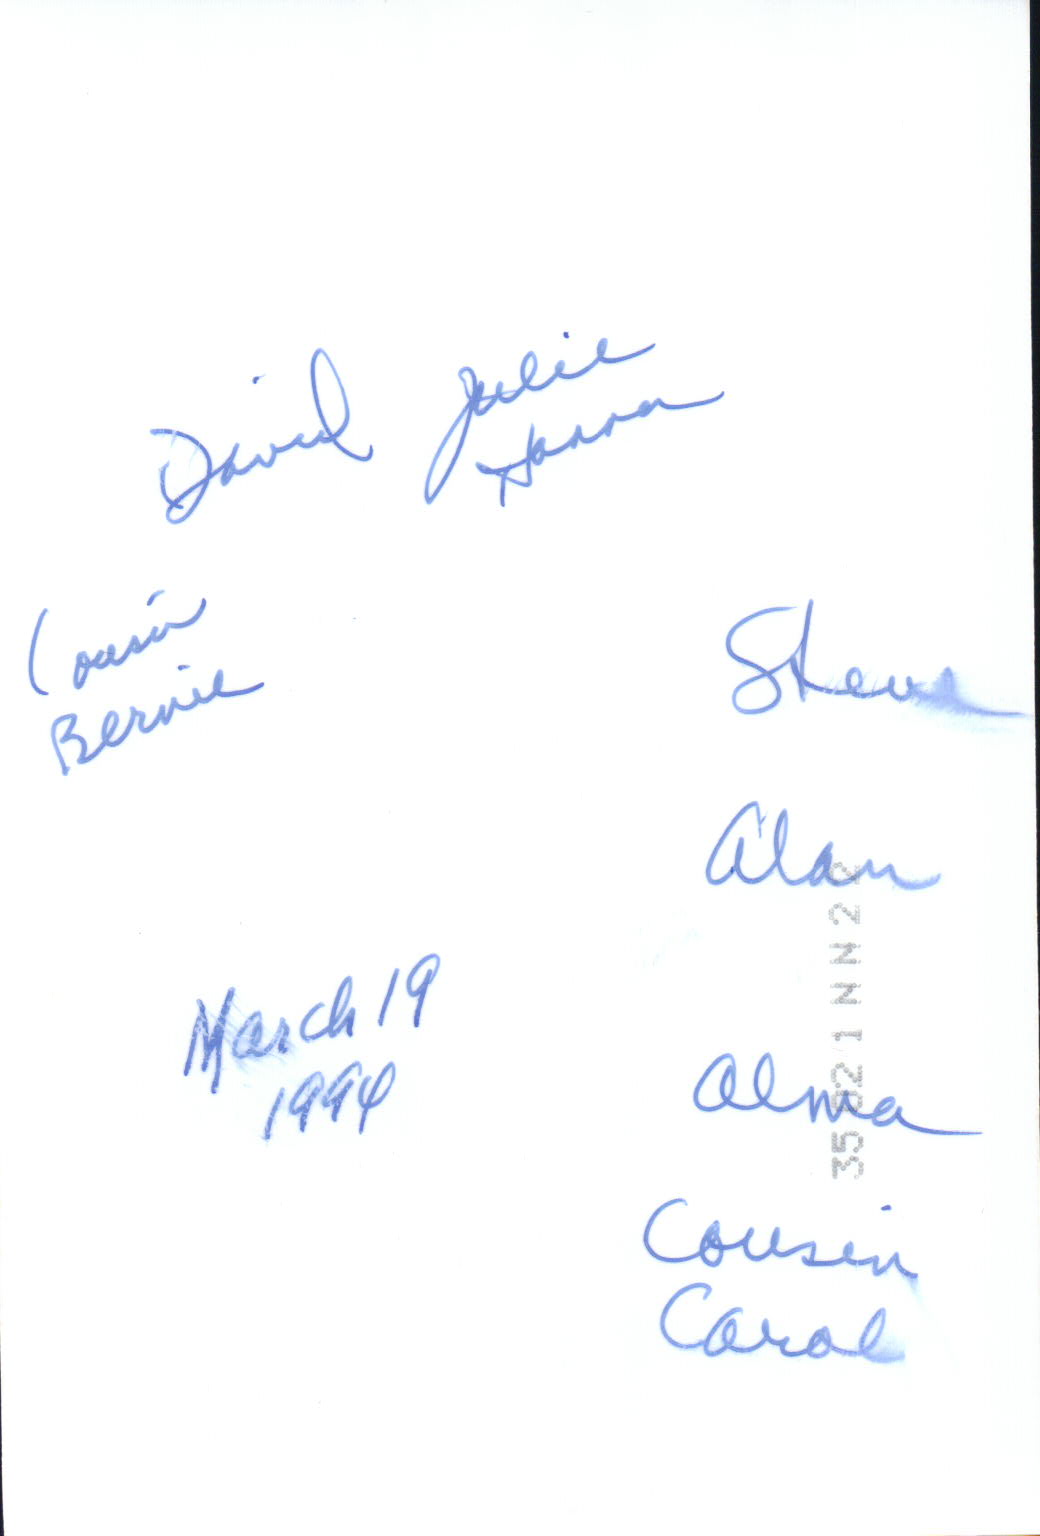 David Julie
Hanna
Cousin
Bernie
Steve
Alan
March 19
1994
Alma
Cousin
Carol